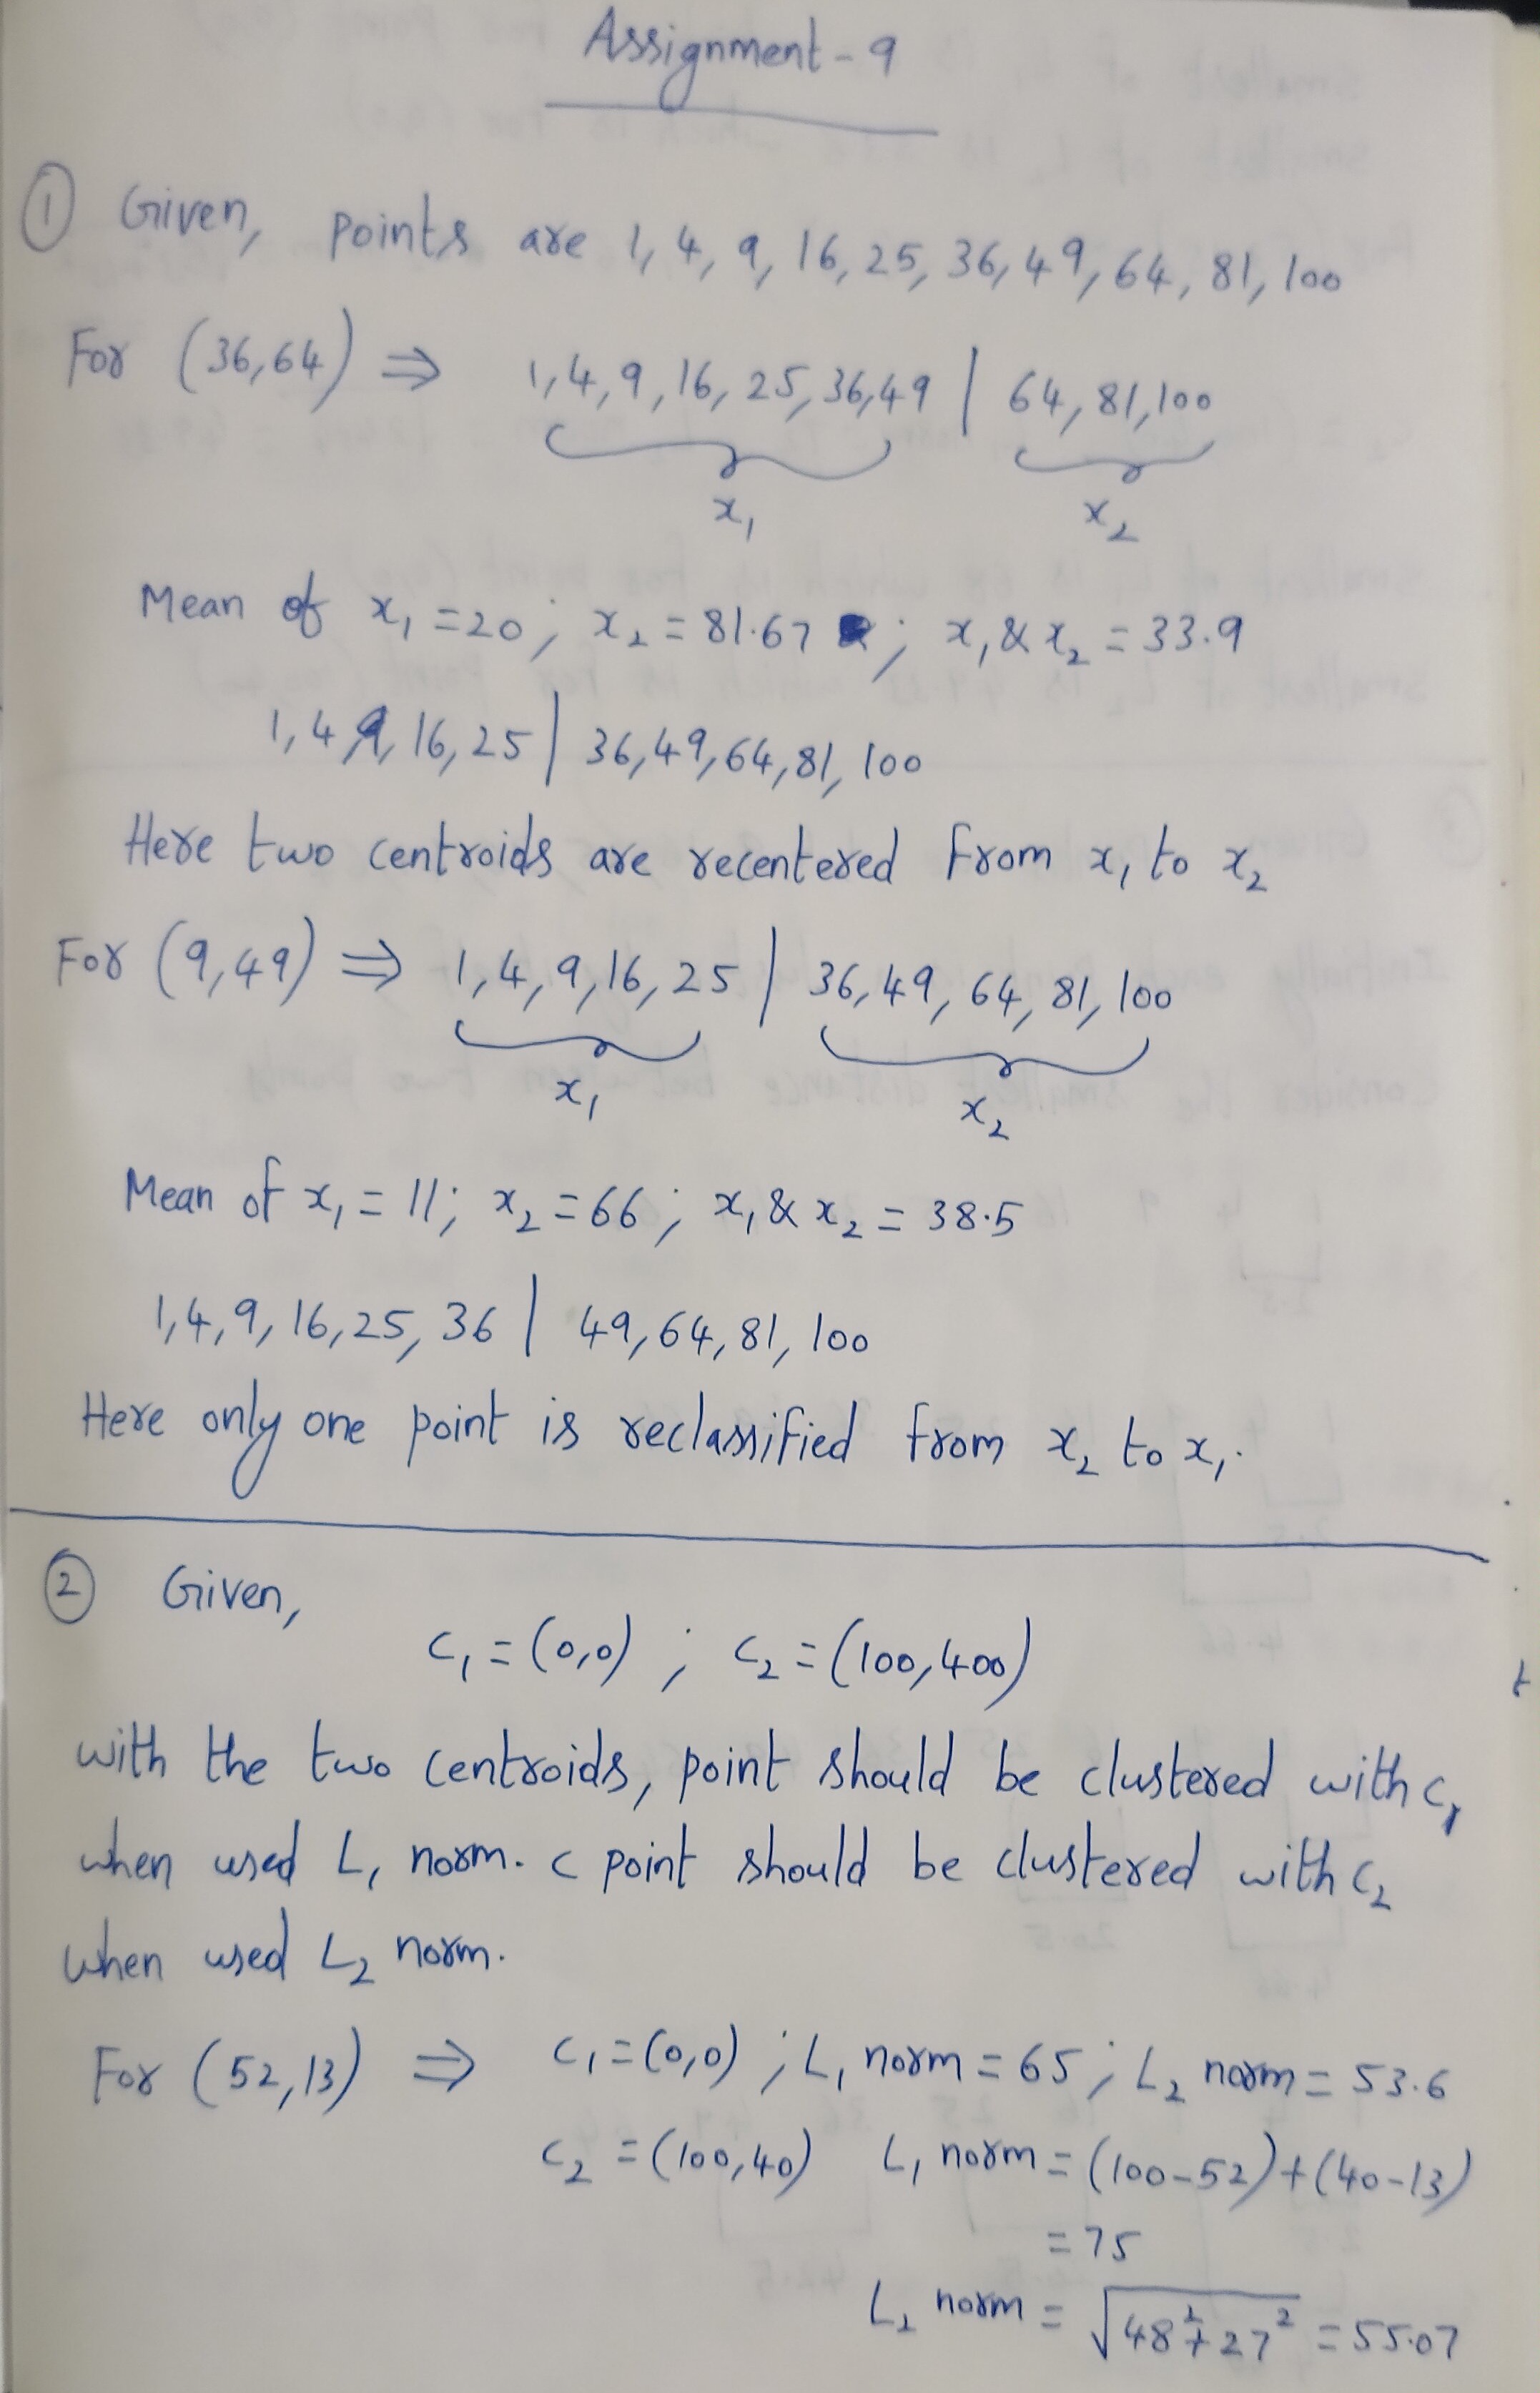 Assignment - 9
① Given, points are 1, 4, 9, 16, 25, 36, 49, 64, 81, 100
For (36,64) ⇒ 1,4,9,16,25,36,49 | 64,81,100
x₁ x₂
Mean of x₁ = 20; x₂ = 81.67; x₁ & x₂ = 33.9
1,4 9, 16, 25 | 36,49,64,81, 100
Here two centroids are recentered from x₁ to x₂
For (9,49) ⇒ 1,4,9,16,25 | 36,49, 64, 81, 100
x₁ x₂
Mean of x₁ = 11; x₂ = 66; x₁ & x₂ = 38.5
1,4,9,16,25,36 | 49,64,81,100
Here only one point is reclassified from x₂ to x₁.
② Given,
C₁ = (0,0) ; C₂ = (100,400)
with the two centroids, point should be clustered with C₁
when used L₁ norm. C point should be clustered with C₂
when used L₂ norm.
For (52,13) ⇒ C₁ = (0,0) ; L₁ norm = 65 ; L₂ norm = 53.6
C₂ = (100,40) L₁ norm = (100-52)+(40-13)
= 75
L₂ norm = √48²+27² = 55.07